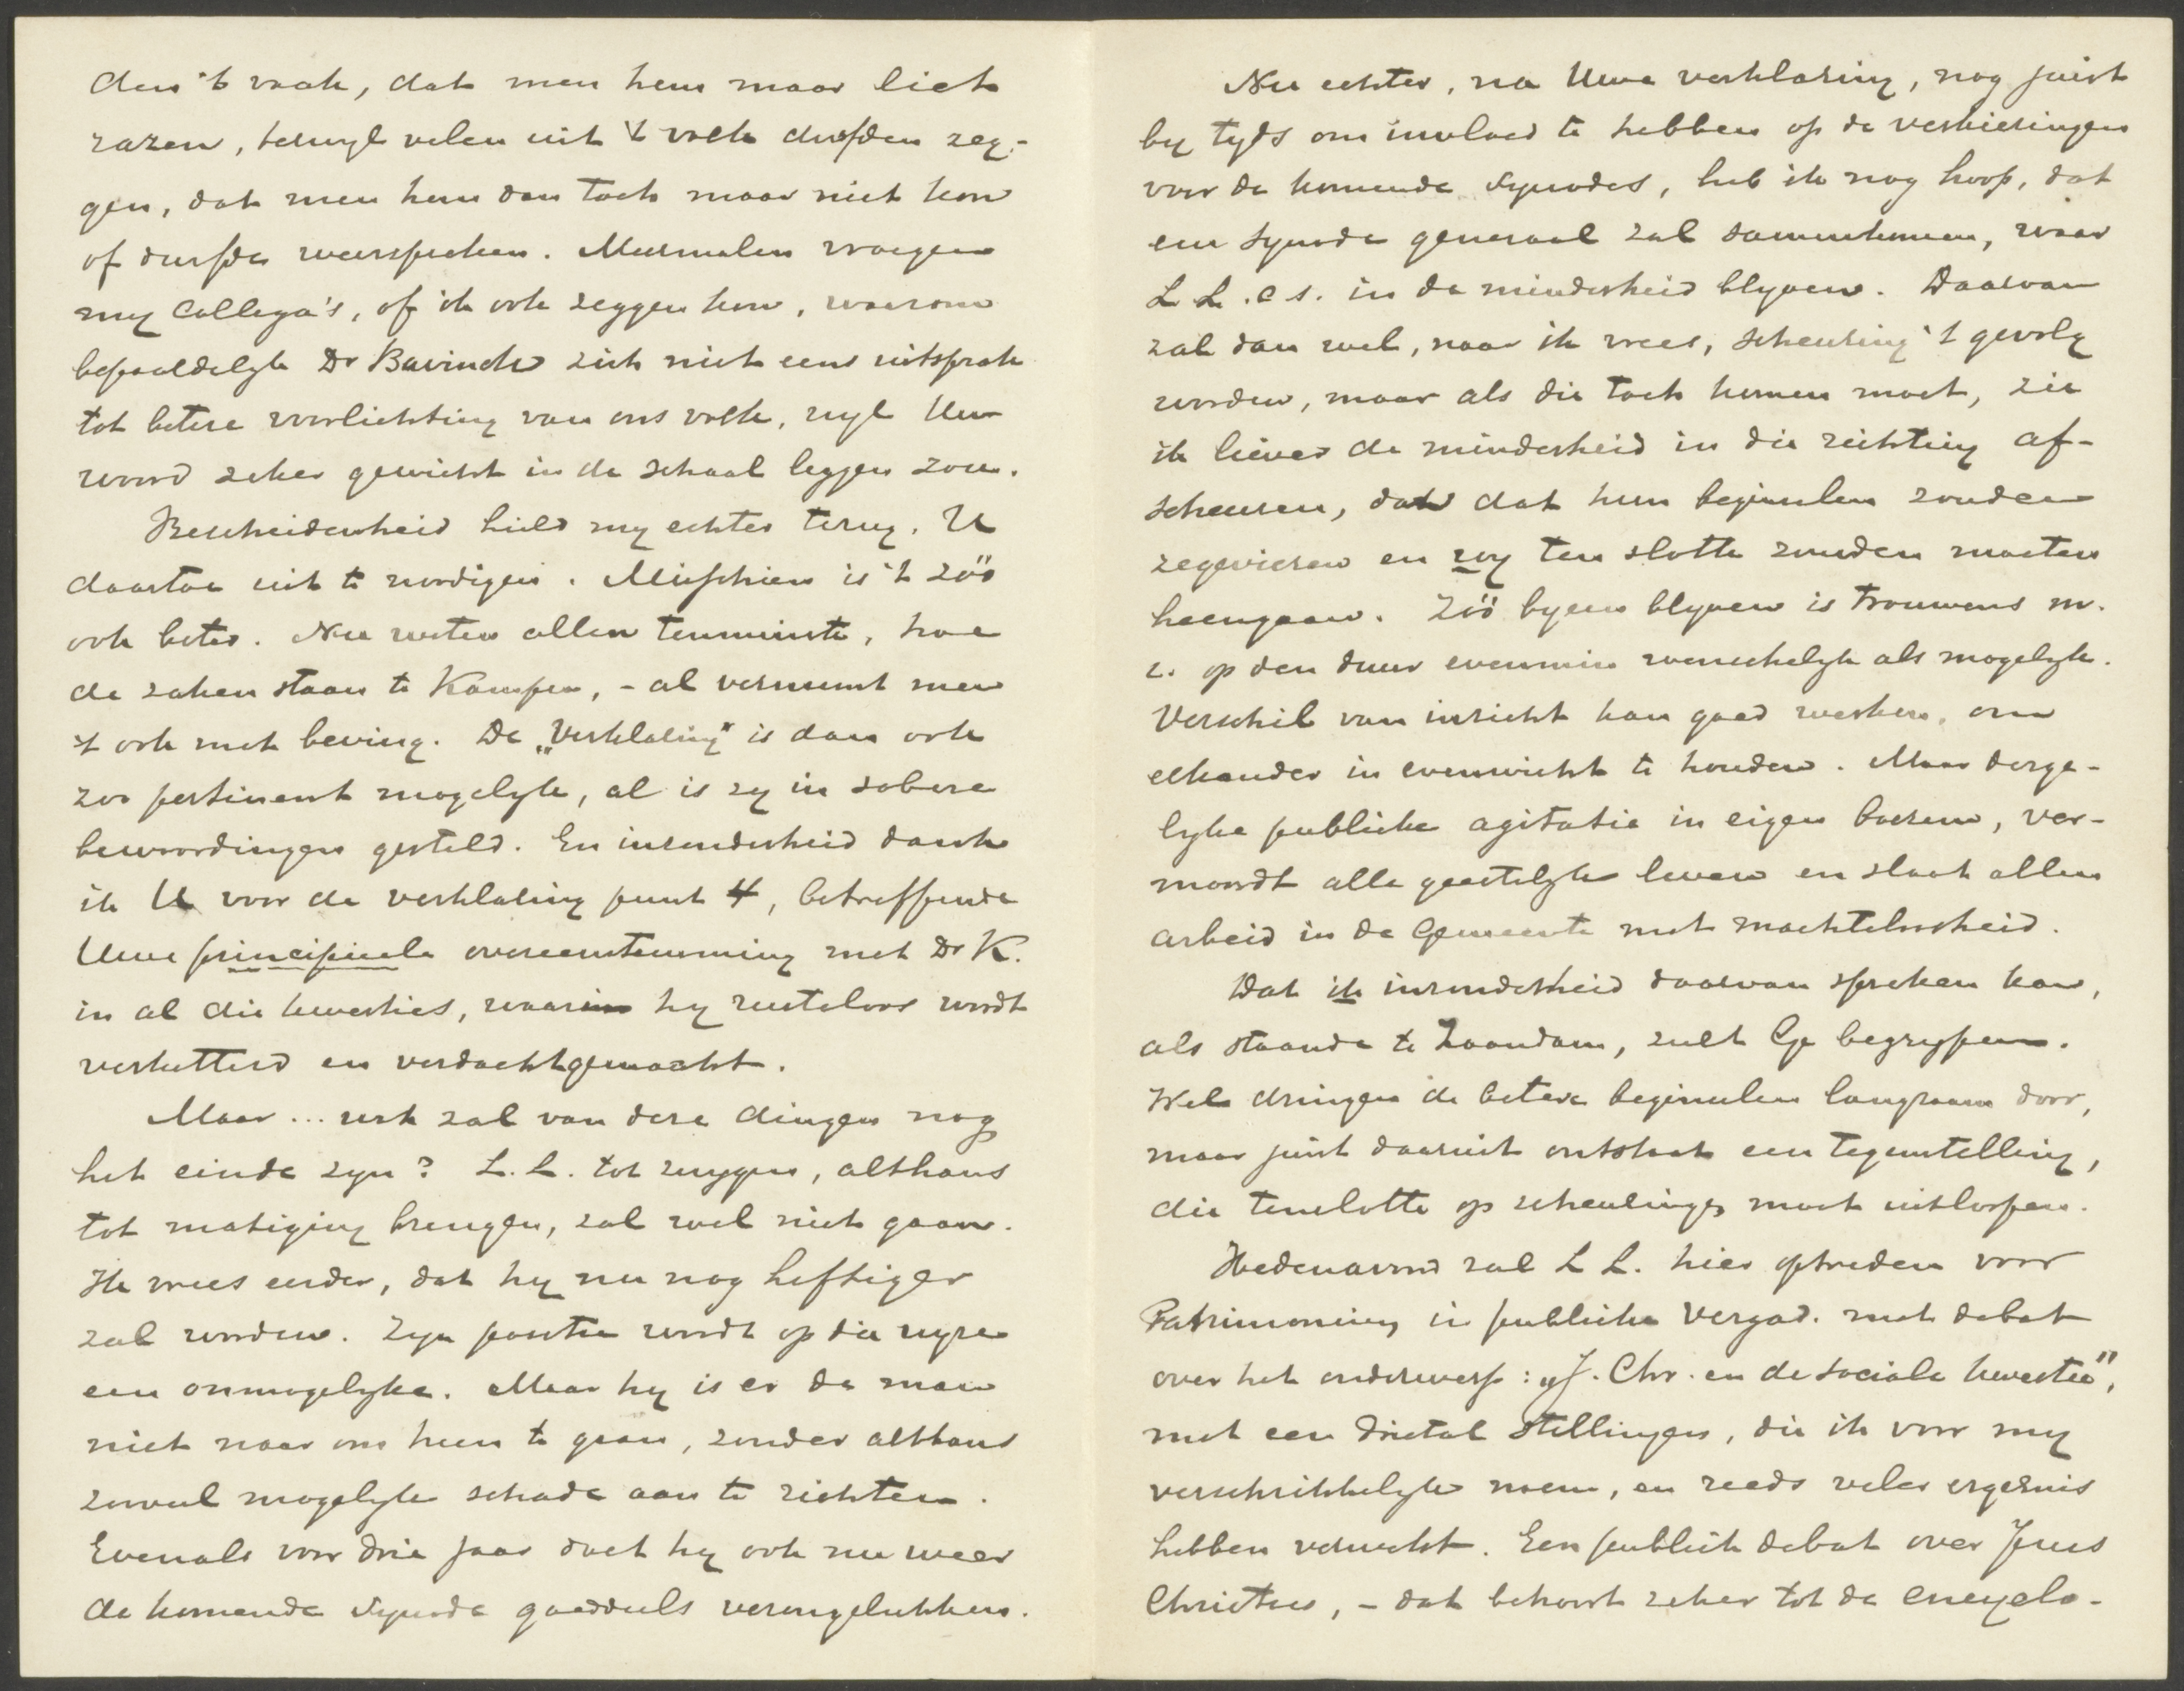 den 't vaak, dat men hem maar liet
razen, terwyl velen uit 't volk durfden zeg-
gen, dat men hem dan toch maar niet kon
of durfde weerspreken. Meermalen vroegen
my collega's, of ik ook zeggen kon, waarom
bepaaldelyk Dr Bavinck zich niet eens uitsprak
tot betere voorlichting van ons volk, wyl Uw
woord zeker gewicht in de schaal leggen zou.
Bescheidenheid hield my echter terug, U
daartoe uit te noodigen. Misschien is 't zóó
ook beter. Nu weten allen tenminste, hoe
de zaken staan te Kampen, - al verneemt men
't ook met beving. De „Verklaring" is dan ook
zoo pertinent mogelyk, al is zy in sobere
bewoordingen gesteld. En inzonderheid dank
ik U voor de verklaring punt 4, betreffende
Uwe principieele overeenstemming met Dr K.
in al die kwesties, waarin hy rusteloos wordt
verketterd en verdachtgemaakt.
Maar... wat zal van deze dingen nog
het einde zyn? L.L. tot zwygen, althans
tot matiging brengen, zal wel niet gaan.
Ik vrees eerder, dat hy nu nog heftiger
zal worden. Zyn positie wordt op die wyze
een onmogelyke. Maar hy is er de man
niet naar om heen te gaan, zonder althans
zooveel mogelyk schade aan te richten.
Evenals voor drie jaar doet hy ook nu weer
de komende Synode goeddeels verongelukken.
Nu echter, na Uwe verklaring, nog juist
by tyds om invloed te hebben op de verkiezingen
voor de komende Synodes, heb ik nog hoop, dat
een Synode generaal zal samenkomen, waar
L L. c s. in de minderheid blyven. Daarvan
zal dan wel, naar ik vrees, scheuring 't gevolg
worden, maar als die toch komen moet, zie
ik liever de minderheid in die richting af-
scheuren, dan dat hun beginselen zouden
zegevieren en wy ten slotte zouden moeten
heengaan. Zóó byeen blyven is trouwens m.
i. op den duur evenmin wenschelyk als mogelyk.
Verschil van inzicht kan goed werken, om
elkander in evenwicht te houden. Maar derge-
lyke publieke agitatie in eigen boezem, ver-
moordt alle geestelyk leven en slaat allen
arbeid in de Gemeente met machteloosheid.
Dat ik inzonderheid daarvan spreken kan,
als staande te Zaandam, zult Ge begrypen.
Wel dringen de betere beginselen langzaam door,
maar juist daaruit ontstaat een tegenstelling,
die tenslotte op scheuringen moet uitloopen.
Hedenavond zal L L. hier optreden voor
Patrimonium in publieke Vergad. met debat
over het onderwerp: „J. Chr. en de sociale kwestie",
met een drietal Stellingen, die ik voor my
verschrikkelyk noem, en reeds veler ergernis
hebben verwekt. Een publiek debat over Jezus
Christus, - dat behoort zeker tot de encyclo-